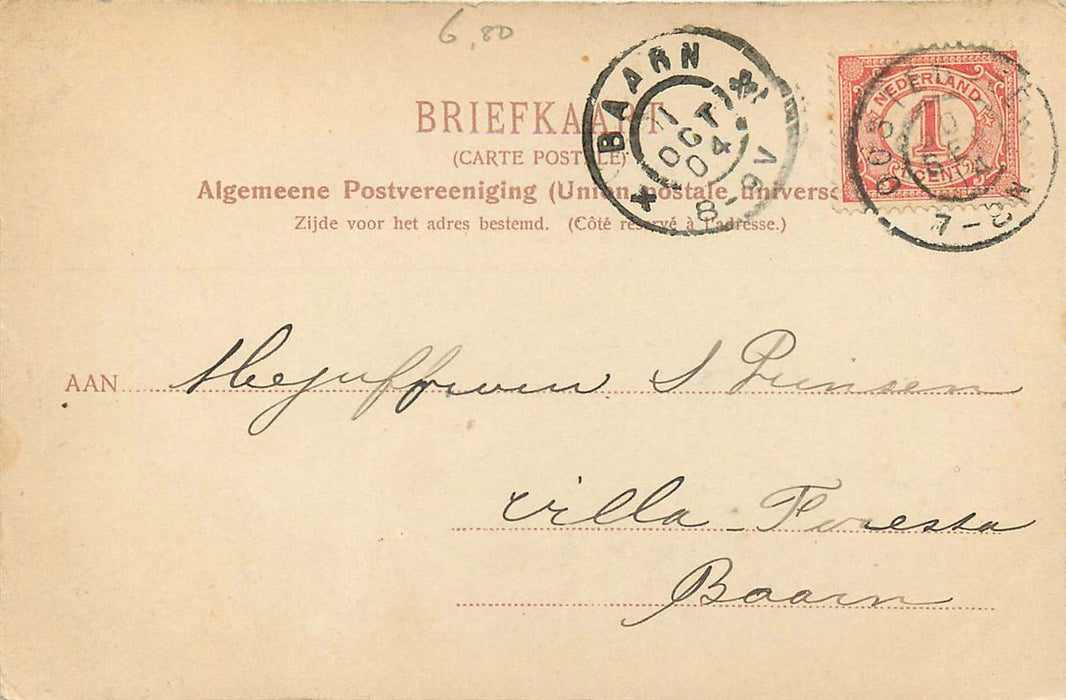 6,80
BAARN
1 OCT 04
8-9V
NEDERLAND
1
CENT
7-8N
BRIEFKAART
(CARTE POSTALE)
Algemeene Postvereeniging (Union postale univers
Zijde voor het adres bestemd. (Côté réservé à l'adresse.)
AAN Mejuffrouw S Prinsen
Villa-Foresta
Baarn